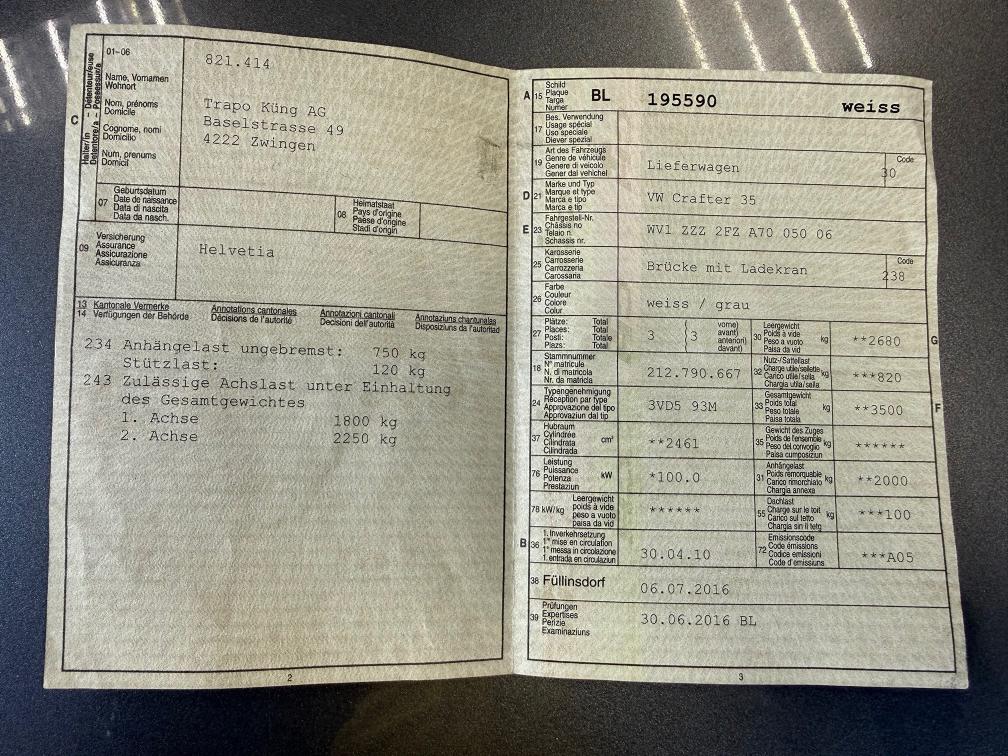 01-06
821.414
C
Halter/in - Détenteur/euse
Detentore/a - Possessur/a
Name, Vornamen
Wohnort
Nom, prénoms
Domicile
Cognome, nomi
Domicilio
Num, prenums
Domicil
Trapo Küng AG
Baselstrasse 49
4222 Zwingen
07
Geburtsdatum
Date de naissance
Data di nascita
Data da nasch.
08
Heimatstaat
Pays d'origine
Paese d'origine
Stadi d'origin
09
Versicherung
Assurance
Assicurazione
Assicuranza
Helvetia
13 Kantonale Vermerke Annotations cantonales Annotazioni cantonali Annotaziuns chantunalas
14 Verfügungen der Behörde Décisions de l'autorité Decisioni dell'autorità Disposiziuns da l'autoriad
234 Anhängelast ungebremst: 750 kg
Stützlast: 120 kg
243 Zulässige Achslast unter Einhaltung
des Gesamtgewichtes
1. Achse 1800 kg
2. Achse 2250 kg
2
A 15
Schild
Plaque
Targa
Numer
BL 195590 weiss
17
Bes. Verwendung
Usage spécial
Uso speciale
Diever spezial
19
Art des Fahrzeugs
Genre de véhicule
Genere di veicolo
Gener dal vehichel
Lieferwagen
Code
30
D 21
Marke und Typ
Marque et type
Marca e tipo
Marca e tip
VW Crafter 35
E 23
Fahrgestell-Nr.
Châssis no
Telaio n.
Schassis nr.
WV1 ZZZ 2FZ A70 050 06
25
Karosserie
Carrosserie
Carrozzeria
Carossaria
Brücke mit Ladekran
Code
238
26
Farbe
Couleur
Colore
Colur
weiss / grau
27
Plätze: Total
Places: Total
Posti: Totale
Plazs: Total
3 {3
vorne)
avant)
anteriori)
davant)
30
Leergewicht
Poids à vide
Peso a vuoto
Paisa da vid
kg
**2680
G
18
Stammnummer
N° matricule
N. di matricola
Nr. da matricla
212.790.667
32
Nutz-/Sattellast
Charge utile/sellette
Carico utile/sella
Chargia utila/sella
kg
***820
24
Typengenehmigung
Réception par type
Approvazione del tipo
Approvaziun dal tip
3VD5 93M
33
Gesamtgewicht
Poids total
Peso totale
Paisa totala
kg
**3500
F
37
Hubraum
Cylindrée
Cilindrata
Cilindrada
cm³
**2461
35
Gewicht des Zuges
Poids de l'ensemble
Peso del convoglio
Paisa cumposiziun
kg
******
76
Leistung
Puissance
Potenza
Prestaziun
kW
*100.0
31
Anhängelast
Poids remorquable
Carico rimorchiato
Chargia annexa
kg
**2000
78 kW/kg
Leergewicht
poids à vide
peso a vuoto
paisa da vid
******
55
Dachlast
Charge sur le toit
Carico sul tetto
Chargia sin il tetg
kg
***100
B 36
1. Inverkehrsetzung
1re mise en circulation
1a messa in circolazione
1. entrada en circulaziun
30.04.10
72
Emissionscode
Code émissions
Codice emissioni
Code d'emissiuns
***A05
38 Füllinsdorf
06.07.2016
39
Prüfungen
Expertises
Perizie
Examinaziuns
30.06.2016 BL
3